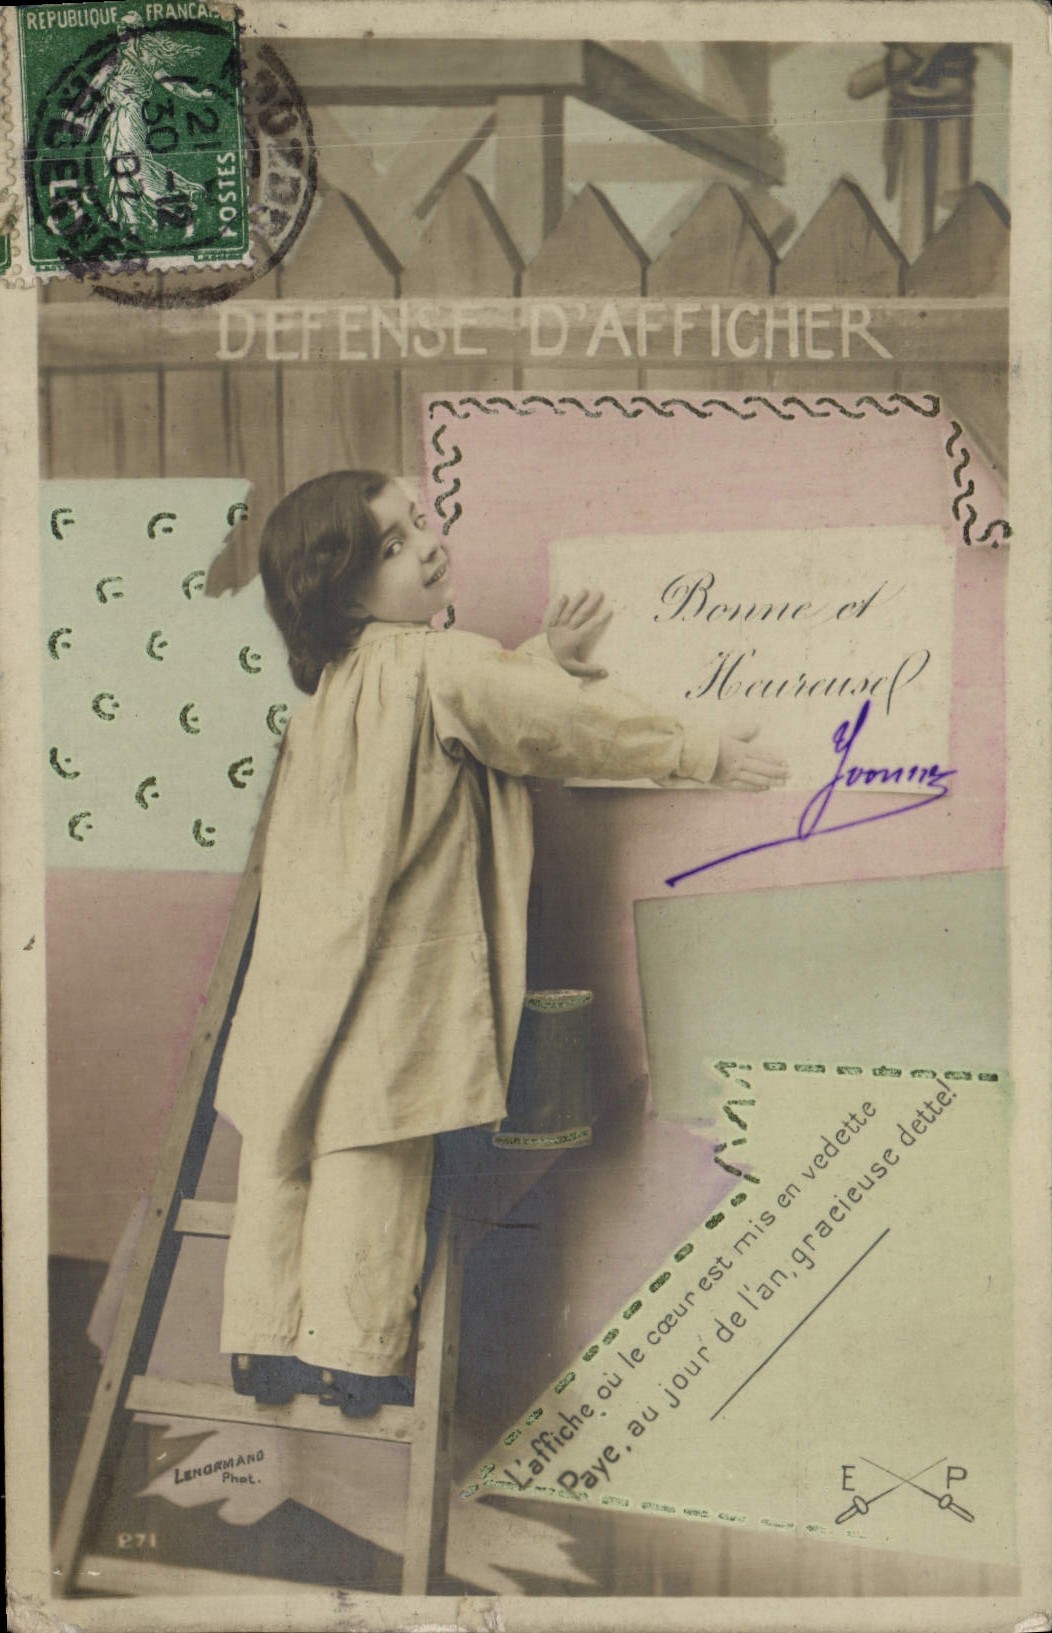 REPUBLIQUE FRANCAISE
POSTES
21
30 -12
07
DEFENSE D'AFFICHER
Bonne et
Heureuse
Yvonne
L'affiche où le cœur est mis en vedette
Paye, au jour de l'an, gracieuse dette!
E P
LENORMAND
Phot.
271